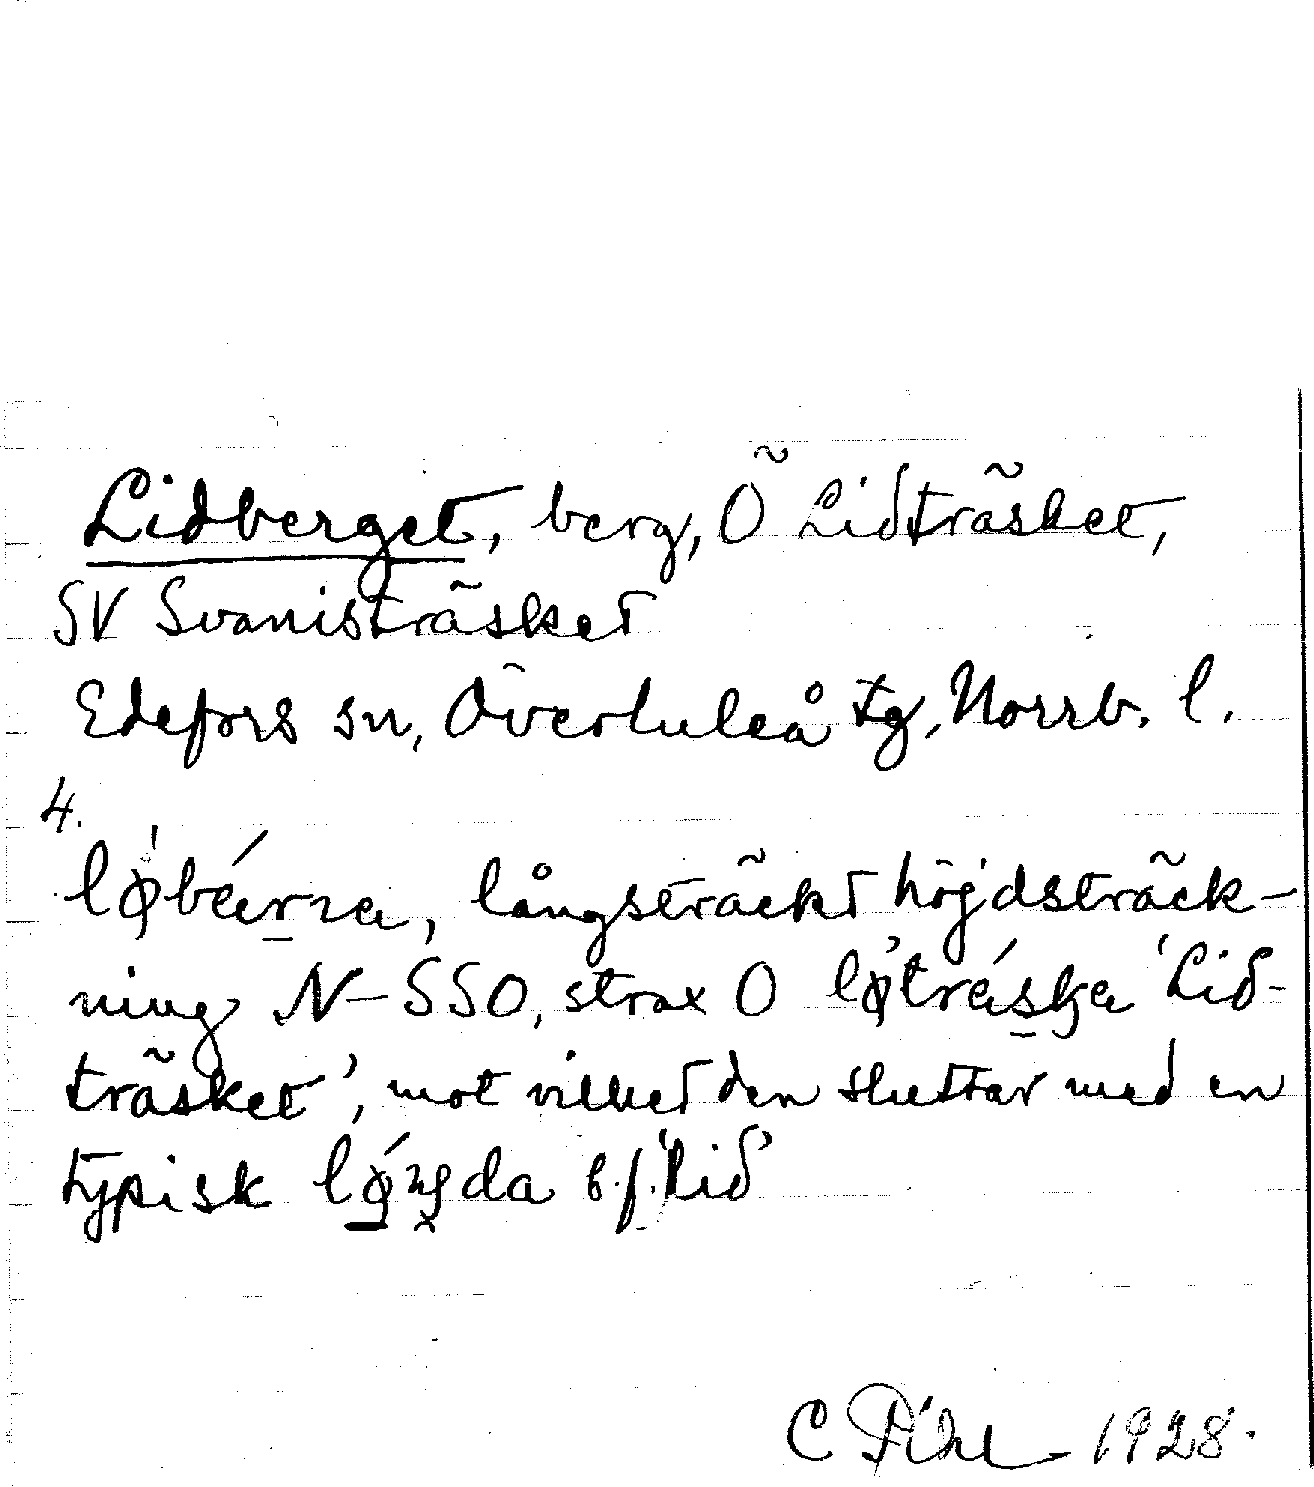 Lidberget, berg, Ö Lidträsket,
SV Svanisträsket
Edefors sn, Överluleå tg, Norrb. l.
4.
långsträckt höjdsträck-
ning N–SSO, strax O 'Lid-
träsket', mot vilket den sluttar med en
typisk b.f. 'lid'
C Pihl 1928.